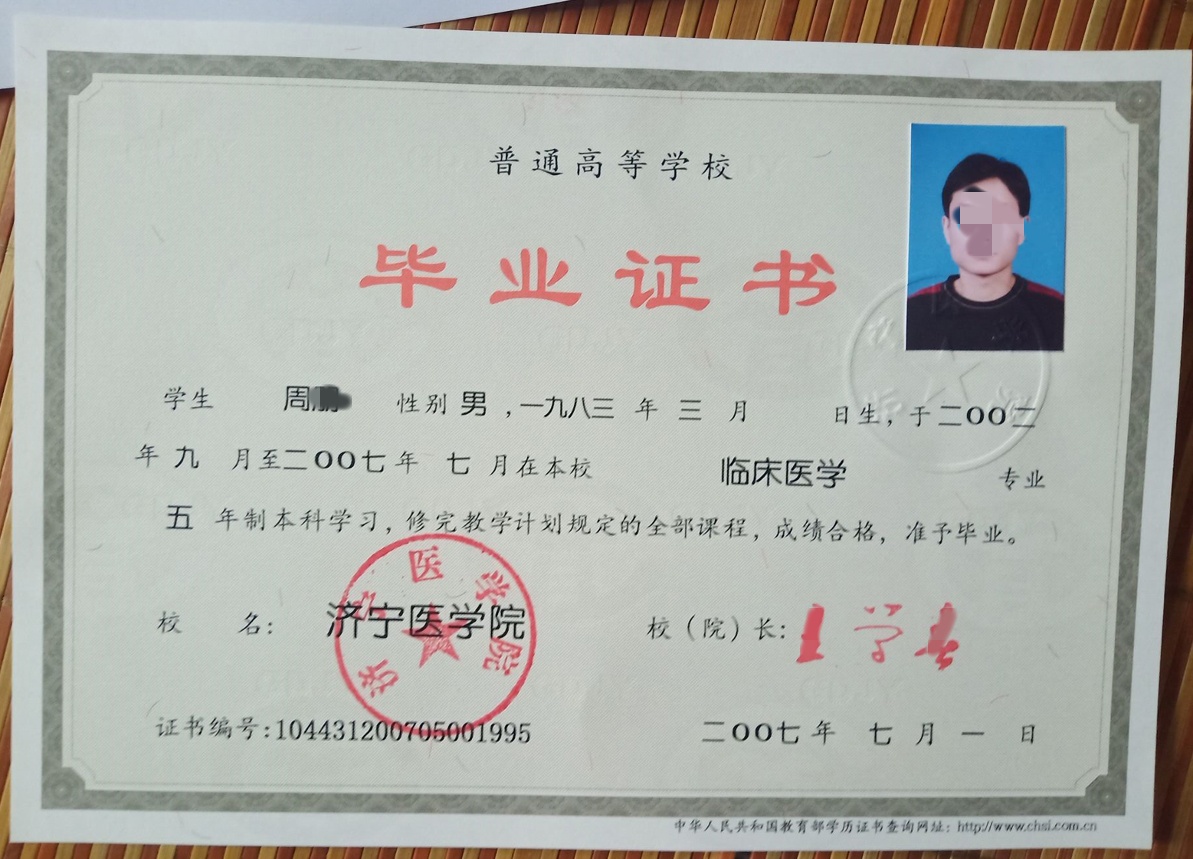 普通高等学校
毕业证书
学生 周 性别 男 ,一九八三 年 三 月 日生，于 二OO二
年 九 月至二OO七年 七 月在本校 临床医学 专业
五 年制本科学习，修完教学计划规定的全部课程，成绩合格，准予毕业。
济宁医学院
校 名： 济宁医学院 校（院）长：
证书编号：104431200705001995 二OO七 年 七 月 一 日
中华人民共和国教育部学历证书查询网址：http://www.chsi.com.cn